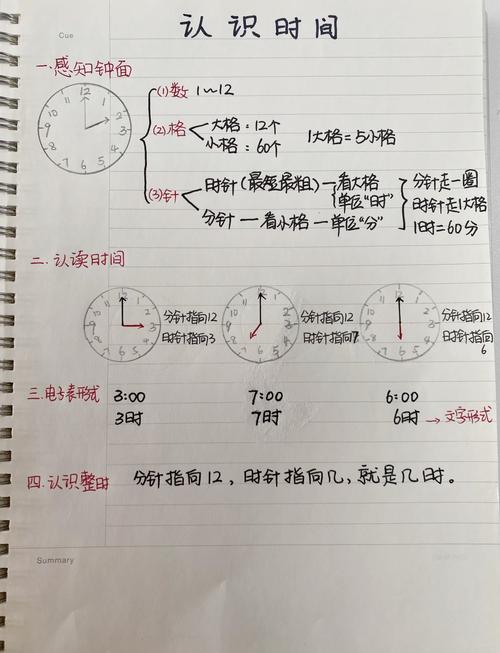 Cue
认识时间
一.感知钟面
12 11 10 9 8 7 6 5 4 3 2 1
(1)数 1~12
(2)格 大格：12个
小格：60个
1大格=5小格
(3)针 时针(最短最粗)—看大格
单位“时”
分针—看小格—单位“分”
分针走一圈
时针走1大格
1时=60分
二.认读时间
分针指向12
时针指向3
分针指向12
时针指向7
分针指向12
时针指向6
三.电子表形式 3:00 7:00 6:00
3时 7时 6时→文字形式
四.认识整时 分针指向12，时针指向几，就是几时。
Summary